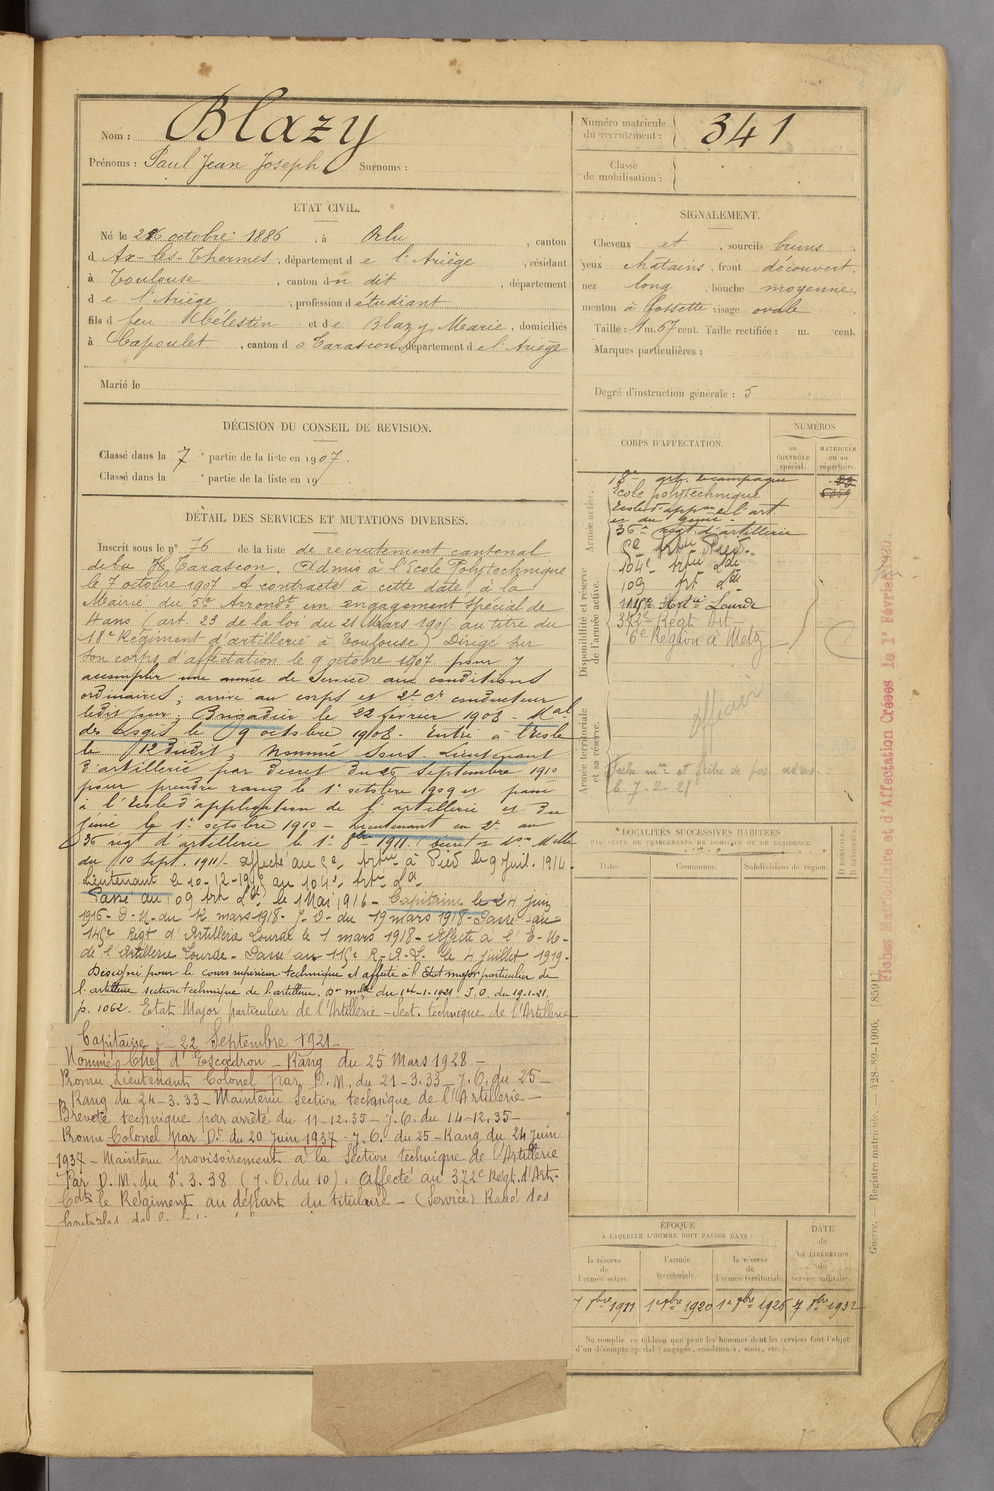 Nom : Blazy
Prénoms : Paul Jean Joseph Surnoms :
Numéro matricule du recrutement : 341
Classe de mobilisation :
ÉTAT CIVIL.
Né le 26 octobre 1886, à Orlu, canton
d Ax-les-Thermes, département de l'Ariège, résidant
à Toulouse, canton du dit, département
de l'Ariège, profession d étudiant
fils d feu Célestin et de Blazy Marie, domiciliés
à Capoulet, canton de Tarascon, département de l'Ariège
Marié le
SIGNALEMENT.
Cheveux et, sourcils bruns
yeux chatains, front découvert,
nez long, bouche moyenne,
menton à fossette visage ovale
Taille : 1 m. 67 cent. Taille rectifiée : m. cent.
Marques particulières :
Degré d'instruction générale : 5
DÉCISION DU CONSEIL DE REVISION.
Classé dans la 7e partie de la liste en 1907.
Classé dans la e partie de la liste en 19
CORPS D'AFFECTATION.
NUMÉROS
au CONTRÔLE spécial.
MATRICULE ou au répertoire.
Armée active.
18e art. campagne
École polytechnique
École d'appon de l'art.
et du Génie.
36e régt d'artillerie
2e artie à Pied.
104e artie Lde
109 art Lde
145e Artie Lourde
372e Régt Art
6e Région à Metz
Disponibilité et réserve de l'armée active.
Armée territoriale et sa réserve.
officier
Fiche mle et fiche de
le 7-2-21
DÉTAIL DES SERVICES ET MUTATIONS DIVERSES.
Inscrit sous le n° 76 de la liste de recrutement cantonal
de Tarascon. Admis à l'École Polytechnique
le 7 octobre 1907 A contracté à cette date, à la
Mairie du 5e Arrondt un engagement spécial de
4 ans (art. 23 de la loi du 21 Mars 1905 au titre du
18e Régiment d'artillerie à Toulouse) Dirigé sur
son corps d'affectation le 9 octobre 1907 pour y
accomplir une année de service aux conditions
ordinaires; arrivé au corps et 2e cr conducteur
ledit jour; Brigadier le 22 février 1908 - Mal
des Logis le 9 octobre 1908 - Entré à l'École
le 12 dudit; nommé Sous Lieutenant
d'artillerie par décret du 25 septembre 1910
pour prendre rang le 1er octobre 1909 et passé
à l'École d'application de l'artillerie et du
génie le 1er octobre 1910 - Lieutenant en 2e au
36 rég. d'artillerie le 1er 8bre 1911. (décret
du 10 sept. 1911) - affecté au 2e artie à Pied le 9 Juil. 1914.
Lieutenant le 10-12- au 104e artie Lde
Passé au 109 art Lde le 1 Mai 1916 - Capitaine le 24 juin
1916 - D.M. du 12 mars 1918 - J.O. du 19 mars 1918 - Passé au
145e Régt d'Artillerie Lourde le 1 mars 1918 - Affecté à l'E-M-
de l'Artillerie Lourde - Passé au 115e R.A.L. le 4 juillet 1919 -
Désigné pour le cours supérieur technique et affecté à l'État major particulier de
l'artillerie section technique de l'artillerie. Don mlle du 14-1-1921. J.O. du 19-1-21.
p. 1062. État Major particulier de l'Artillerie - Sect. technique de l'Artillerie
Capitaine 22 Septembre 1921 -
Nommé Chef d'Escadron - Rang du 25 Mars 1928 -
Promu Lieutenant Colonel par D.M. du 21-3-33 - J.O. du 25 -
Rang du 24-3-33 - Maintenu Section technique de l'Artillerie -
Breveté technique par arrêté du 11-12-35 - J.O. du 14-12-35 -
Promu Colonel par Dt du 20 Juin 1937 - J.O. du 25 - Rang du 24 Juin
1937 - Maintenu provisoirement à la Section technique de l'Artillerie
Par D.M. du 8.3.38 (J.O. du 10). Affecté au 372e Régt. d'Art.
Cdt le Régiment au départ du titulaire - (Service) Rayé des
Contrôles de
LOCALITÉS SUCCESSIVES HABITÉES
PAR SUITE DE CHANGEMENTS DE DOMICILE OU DE RÉSIDENCE.
Dates.
Communes.
Subdivisions de région.
D. DOMICILE.
R. RÉSIDENCE.
ÉPOQUE
À LAQUELLE L'HOMME DOIT PASSER DANS :
la réserve de l'armée active.
l'armée territoriale.
la réserve de l'armée territoriale.
DATE de LA LIBÉRATION du service militaire.
7 8bre 1911
1er 8bre 1920
1er 8bre 1926
7 8bre 1932
Ne remplir ce tableau que pour les hommes dont les services font l'objet
d'un décompte spécial (engagés, condamnés, omis, etc.).
Fiches Matriculaire et d'Affectation Créées le 1er Février 1920.
Guerre. — Registre matricule. — 428-89-1906. [8591]